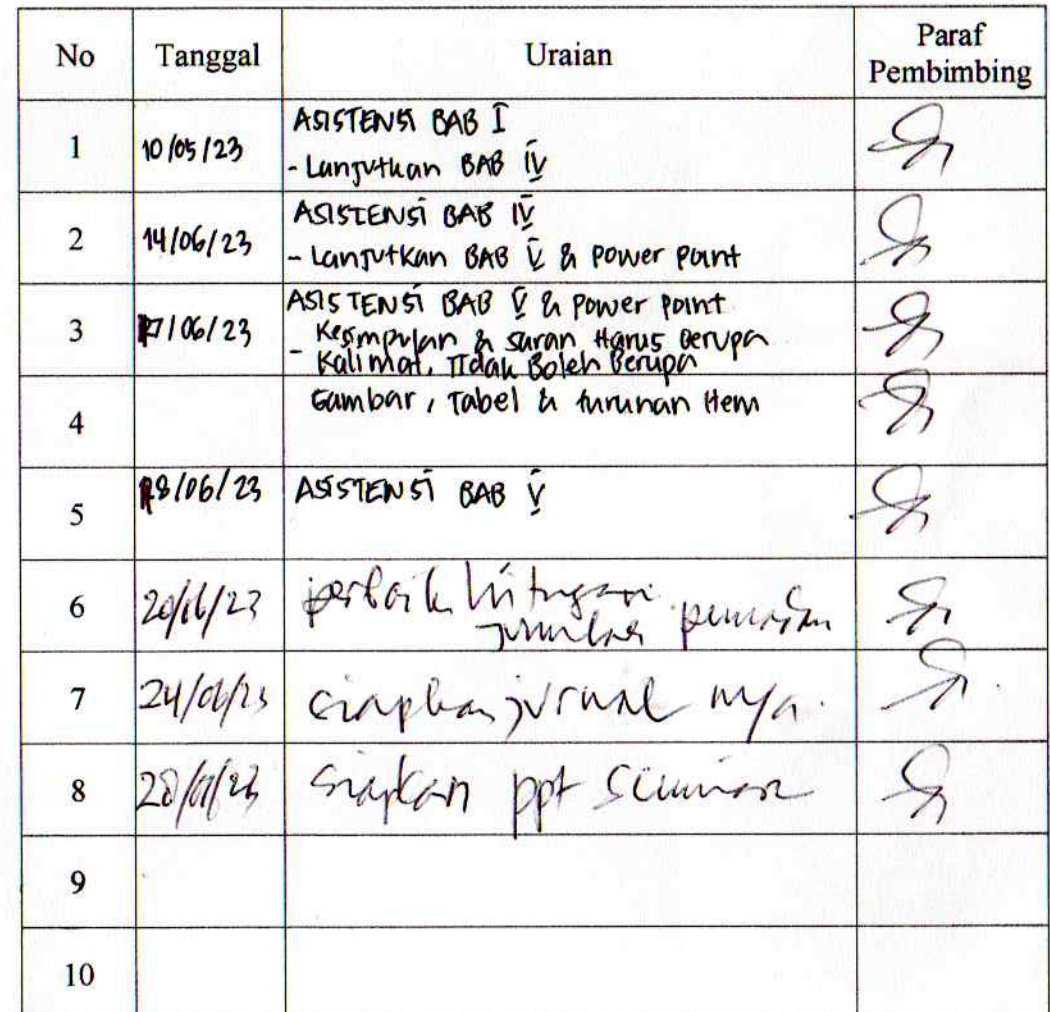 No Tanggal Uraian Paraf Pembimbing
1 10/05/23 ASISTENSI BAB I
- Lanjutkan BAB IV
2 14/06/23 ASISTENSI BAB IV
- Lanjutkan BAB V & Power Point
3 17/06/23 ASISTENSI BAB V & Power Point
- Kesimpulan & saran Harus Berupa
Kalimat, Tidak Boleh Berupa
4 Gambar, Tabel & turunan Item
5 18/06/23 ASISTENSI BAB V
6 20/06/23 perbaiki hitungan
jumlah
7 24/06/23 siapkan jurnal nya.
8 siapkan ppt seminar
9
10